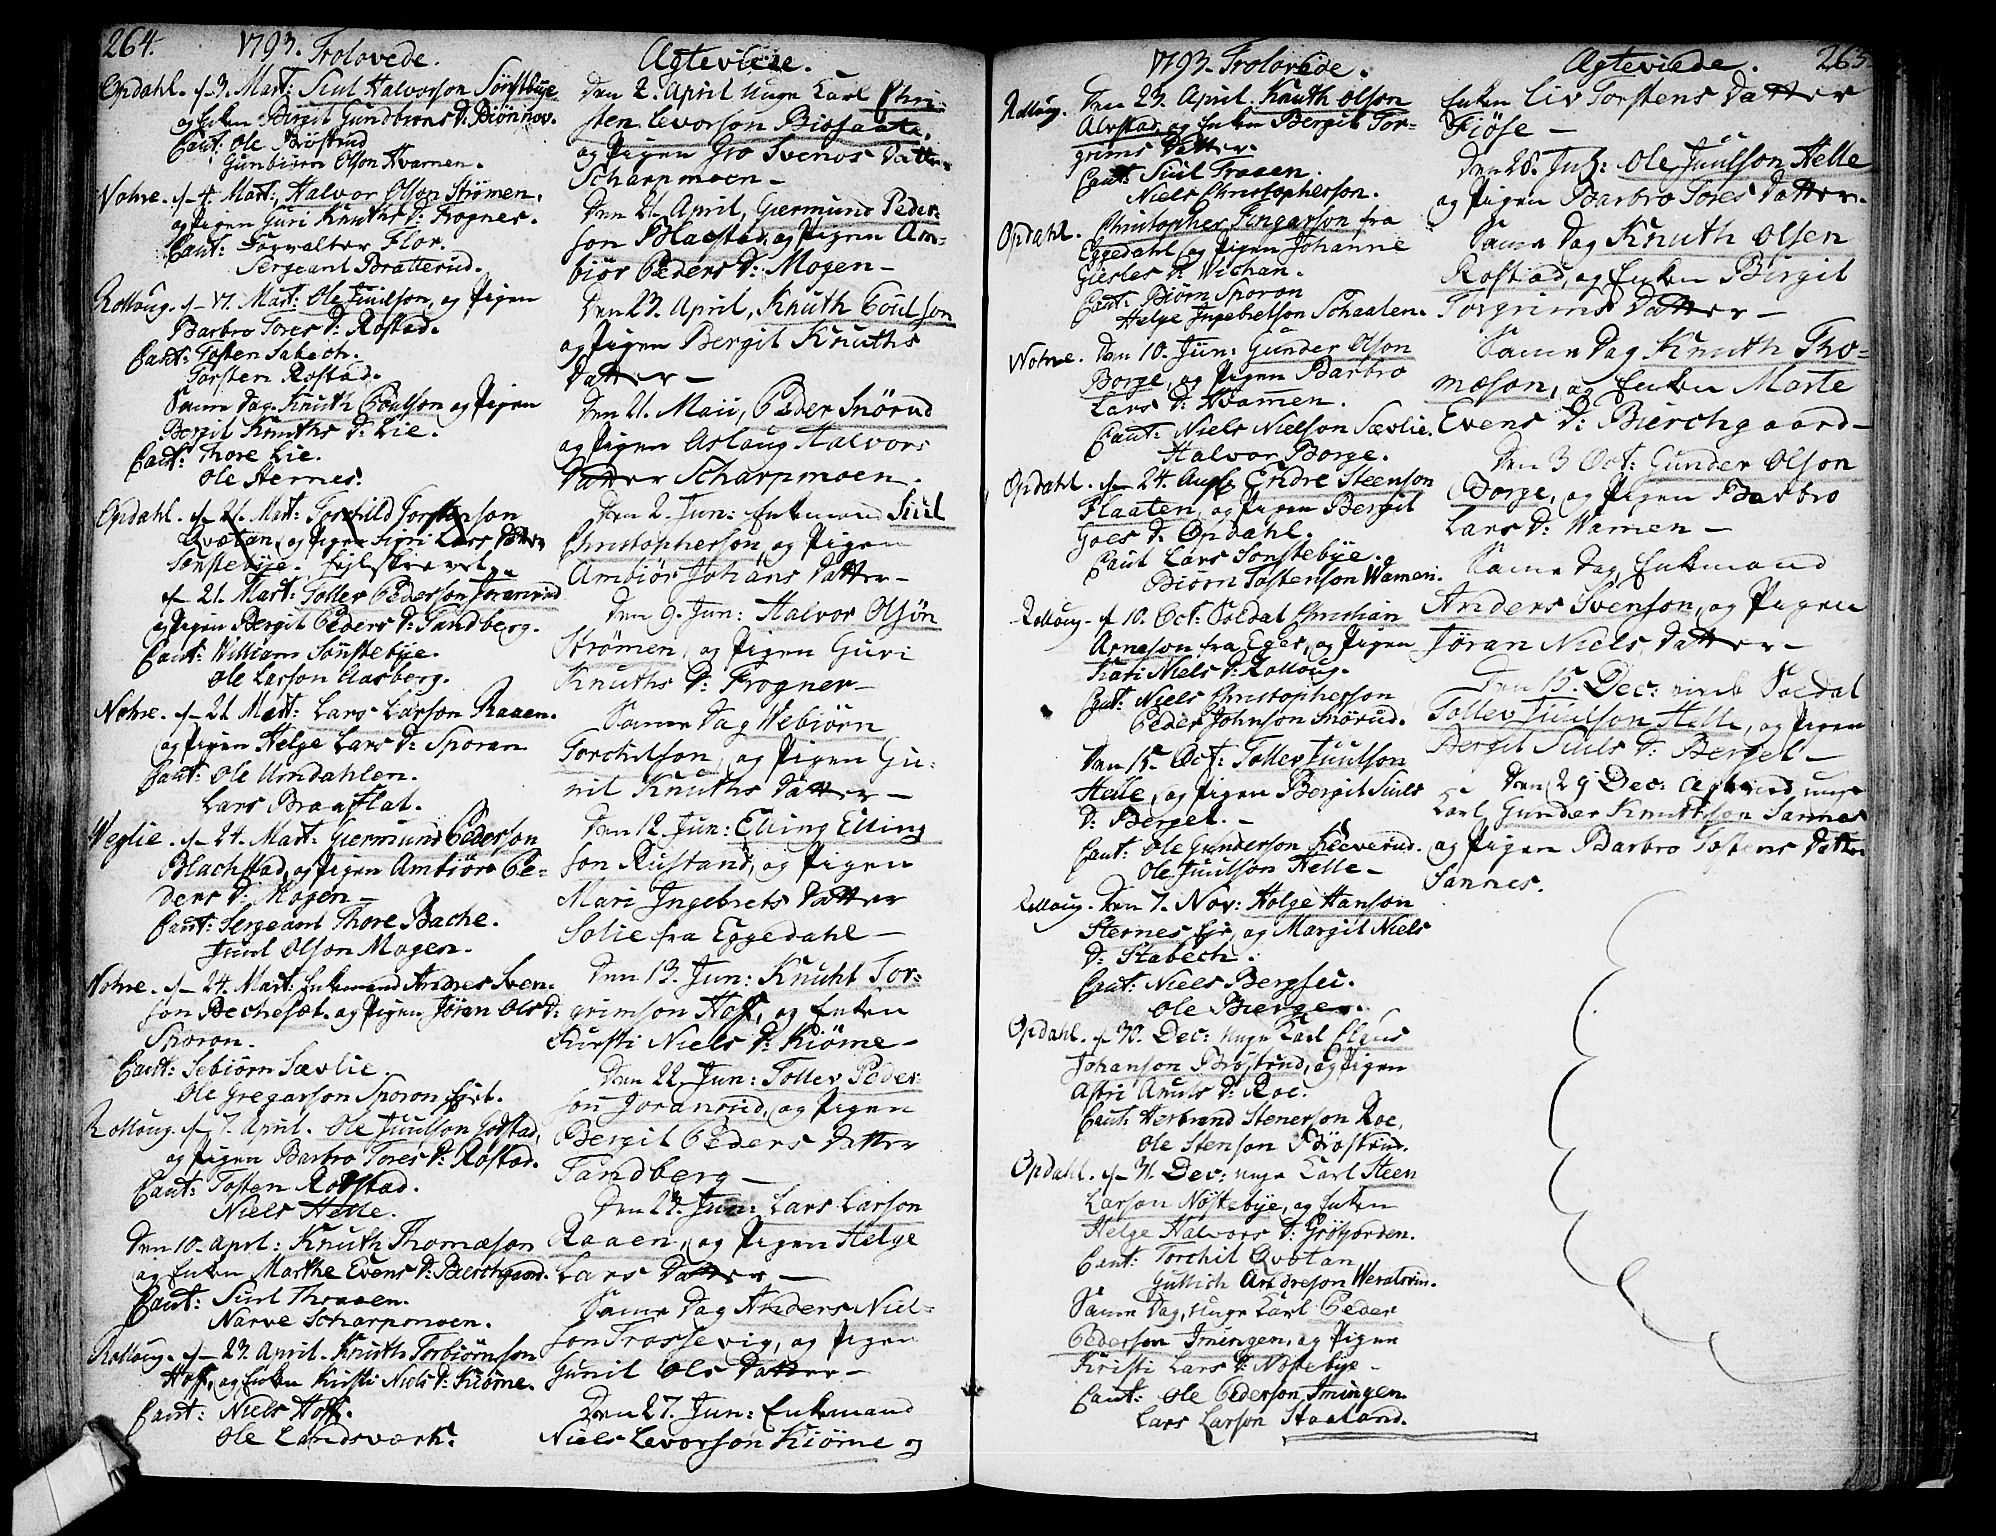 264.
1793. Trolovede.
Opdahl. d. 3. Mart: Siul Halvorson Sønstbye
og Enken Birgit Gundbiørns D: Biønnov.
Caut: Ole Brøstrud
Gunbiørn Olson Hvamen.
Nohre. d. 4. Mart: Halvor Olson Strømen.
og Pigen Guri Knuths D: Frogner.
Caut: Fogvalter Flor.
Sergeant Bratterud.
Rolloug. d. 17. Mart: Ole Juulson, og Pigen
Barbro Tores D: Rostad.
Caut: Tosten
Torsten Rostad.
Samme Dag. Knuth Poulson og Pigen
Bergit Knuths D: Lie.
Caut: Thore Lie.
Ole Hernes.
Opdahl. d. 21. Mart: Torchild Torstenson
Qvotan, og Pigen Sigri Lars Datter
Sønstebye. fejlskrevet
d. 21. Mart: Tollev Pederson Joranrud
og Pigen Bergit Peders D: Tandberg.
Caut: William Sønstebye.
Ole Larson Aasberg.
Nohre. d. 21. Mart: Lars Larson Raaen.
og Pigen Helge Lars D: Sporan
Caut: Ole Umdahlen.
Lars Braaflat.
Weglie. d. 24. Mart: Giermund Pederson
Blachstad, og Pigen Ambiør Pe-
ders D: Mogen
Caut: Sergeant Thore Bache.
Juul Olson Mogen.
Nohre. d. 24. Mart: Enkemand Andres Sven-
son Bechesæt. og Pigen Jøran Ols D:
Sporon.
Caut: Sebiørn Sævlie.
Ole Gregarson Sporon
Rolloug. d. 7. April. Ole Juulson
og Pigen Barbro Tores D: Rostad.
Caut: Tosten Rodstad.
Niels Helle.
Den 10. Aprl: Knuth Thomæson
og Enken Marthe Evens D: Bierchgaard.
Caut: Siul Thraaen.
Narve Scharpmoen.
Rolloug. d. 23. April. Knuth Torbiørnson
Hoff, og Enken Kirsti Niels D: Kiøme.
Caut: Niels Hoff.
Ole Landsværk.
Ægteviede.
Den 2. April Unge Karl Chri-
sten Levorson Biosaate.
og Pigen Gro Svenos Datter
Scharpmoen -
Den 21. April, Giermund Peder-
son Blagstad, og Pigen Am-
biør Peders D: Mogen -
Den 23. April, Knuth Poulson
og Pigen Bergit Knuths
Datter -
Den 21. Maii, Peder Snørud
og Pigen Aslaug Halvors
Datter Scharpmoen.
Den 2. Jun: Enkemand Siul
Christopherson, og Pigen
Ambiør Johans Datter -
Den 9. Jun: Halvor Olsøn
Strømen, og Pigen Guri
Knuths D: Frogner -
Samme Dag Webiørn
Torchilson, og Pigen Gu-
nil Knuths Datter -
Den 12. Jun: Elling Elling
son Rustand, og Pigen
Mari Ingebrets Datter
Solie fra Eggedahl -
Den 13. Jun: Knuht Tor-
grimson Hoff, og Enken
Kirsti Niels D: Kiøme -
Den 22. Jun: Tollev Peder-
son Joranrud, og Pigen
Bergit Peders Datter
Tandberg -
Den 23. Jun: Lars Larson
Raaen, og Pigen Helge
Lars Datter -
Samme Dag Anders Niel-
son Trossevig, og Pigen
Gunil Ols Datter -
Den 27. Jun: Enkemand
Niels Levorson Kiøme og
1793. Trolovede.
Rolloug. Den 23. April. Knuth Olson
Alvstad, og Enken Bergit Tor-
grims Datter.
Caut: Siul Traaen.
Niels Christopherson.
Opdahl. Christopher Tingarson fra
Eggedahl, og Pigen Johanne
Giesles D: Wichan.
Caut: Biørn Sporon
Helge Ingebretson Schaalen.
Nohre. Den 10. Jun: Gunder Olson
Borge, og Pigen Barbro
Lars D: Hvamen.
Caut: Niels Nielson Sævlie.
Halvor Borge.
Opdahl. d. 24. Aug: Endre Steenson
Flaaten, og Pigen Bergit
Goes D: Opdahl.
Caut Lars Sønstebye.
Biørn Tostenson Wamen.
Rolloug. d. 10. Oct: Soldat Christian
Arneson fra Eger, og Pigen
Kari Niels D: Rolloug.
Caut: Niels Christopherson
Peder Johnson Snørud.
Den 15. Oct: Tollev Juulson
Helle, og Pigen Bergit Siuls
D: Berget. -
Caut: Ole Gunderson Keeverud.
Ole Juulson Helle -
Rolloug. Den 7. Nov: Helge Hanson
Sternes og Margit Niels
D: Stabech.
Caut: Niels Bergseu.
Ole Bierger.
Opdahl. d. 30. Dec: Unge Karl Claus
Johanson Brøstrud, og Pigen
Astri Amuls D: Roe.
Caut: Herbrand Stenerson Roe,
Ole Stenson Brøstrud.
Opdahl. d. 31. Dec: Unge Karl Steen
Larson Nøstebye, og Enken
Helge Halvors D: Grøfjorden.
Caut: Torchil Qvotan
Guttich Arldreson
Samme Dag, Unge Karl Peder
Pederson Imingen, og Pigen
Kiristi Lars D: Nøstebye -
Caut: Ole Pederson Imingen.
Lars Larson Staaland.
Ægteviede. 265
Enken Liv Torstens Datter
Fiøse -
Den 28. Jul: Ole Juulson Helle
og Pigen Barbro Tores Datter.
Samme Dag Knuth Olsen
Rostad, og Enken Birgit
Torgrims Datter -
Samme Dag Knuth Tho-
mæson, og Enken Marte
Evens D: Bierchgaard -
Den 3 Oct: Gunder Olson
Borge, og Pigen Barbro
Lars D: Wamen -
Samme Dag Enkemand
Anders Svenson, og Pigen
Jøran Niels Datter -
Den 15. Dec: viede Soldat
Tollev Juulson Helle, og Pigen
Bergit Siuls D: Berget -
Den 29 Dec: Ægteviid unge
Karl Gunder Knuthson Sannes
og Pigen Barbro Tostens Datter
Sannes.